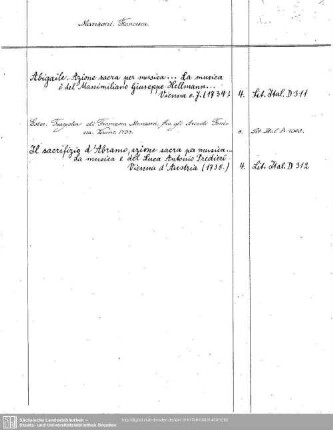 Manzoni, Francesca.
Abigaile. Azione sacra per musica... La musica
è del Massimiliano Giuseppe Hellmann...
Vienna s. J. (1734.) 4. Lit. Ital. D 311
Ester. Tragedia di Francesca Manzoni, fra gli Arcadi
1733. Lit. It.
Il sacrifizio d'Abramo, azione sacra per musica...
La musica è del Luca Antonio Predieri
Vienna d'Austria (1738.) 4. Lit. Ital. D 312
Sächsische Landesbibliothek –
Staats- und Universitätsbibliothek Dresden